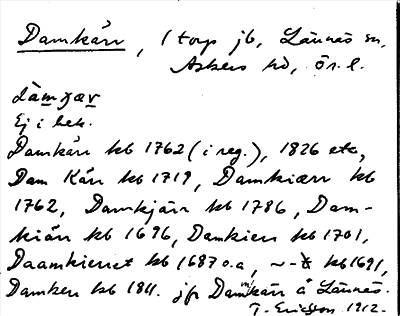 Damkärr, 1 torp jb, Lännäs sn,
Askers hd, ör. l.
Ej i bek.
Damkärr kb 1762 (i reg.), 1826 etc,
Dam Kärr kb 1719, Damkiærr kb
1762, Damkjärr kb 1786, Dam-
kiärr kb 1696, Damkierr kb 1701,
Daamkierret kb 1687 o.a, kb 1691,
Damkerr kb 1811. jfr Dammkärr å Lännäs.
T. Ericsson 1912.